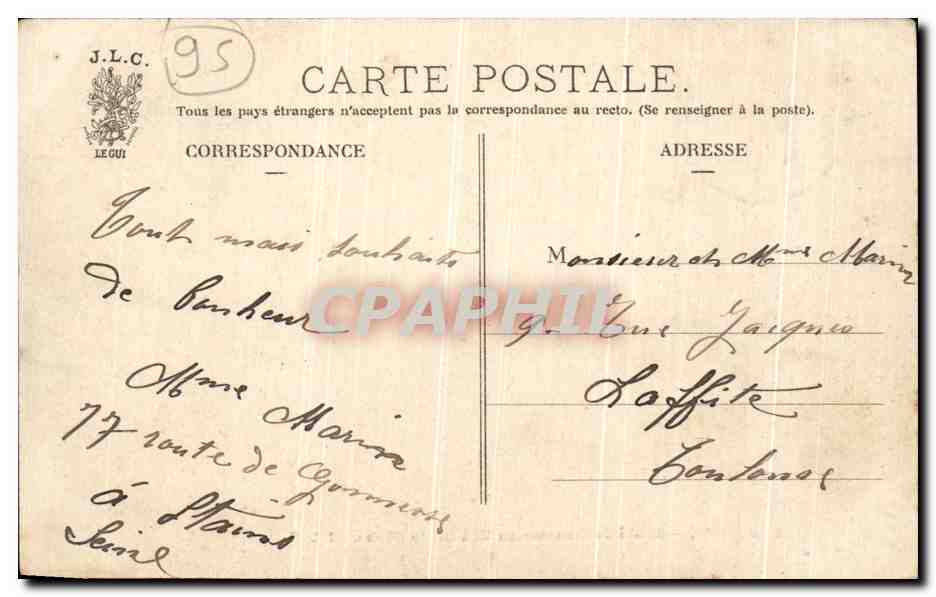 J.L.C.
LE GUI
95
CARTE POSTALE.
Tous les pays étrangers n'acceptent pas la correspondance au recto. (Se renseigner à la poste).
CORRESPONDANCE
Tout mais souhaits
de bonheur
Mme Marin
77 route de Gonnesse
à Stains
Seine
ADRESSE
Monsieur et Mme Marin
9. Rue Jacques
Laffite
CPAPHIL